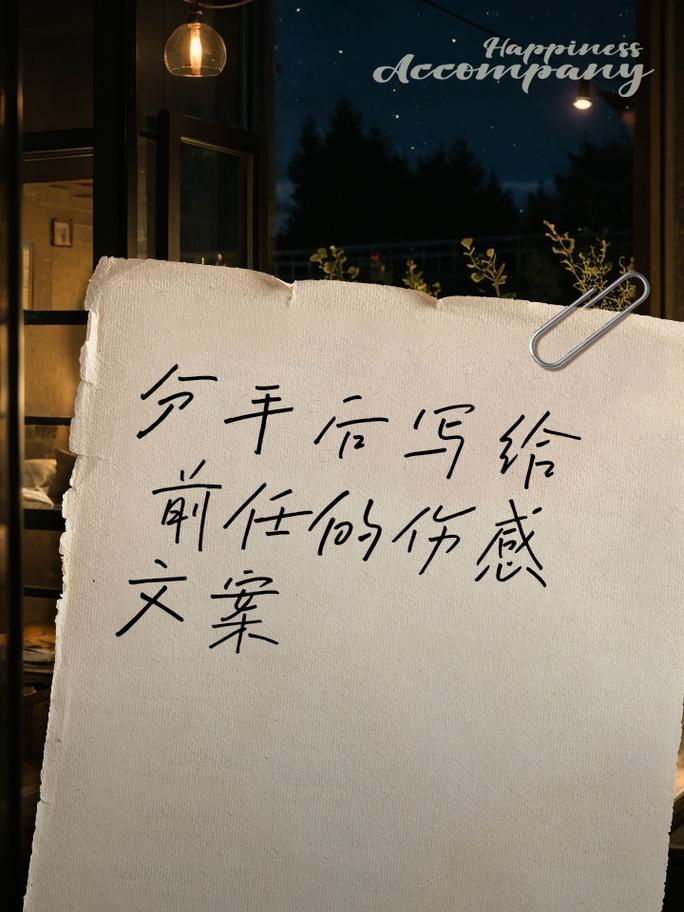 Happiness
Accompany
分手后写给
前任的伤感
文案